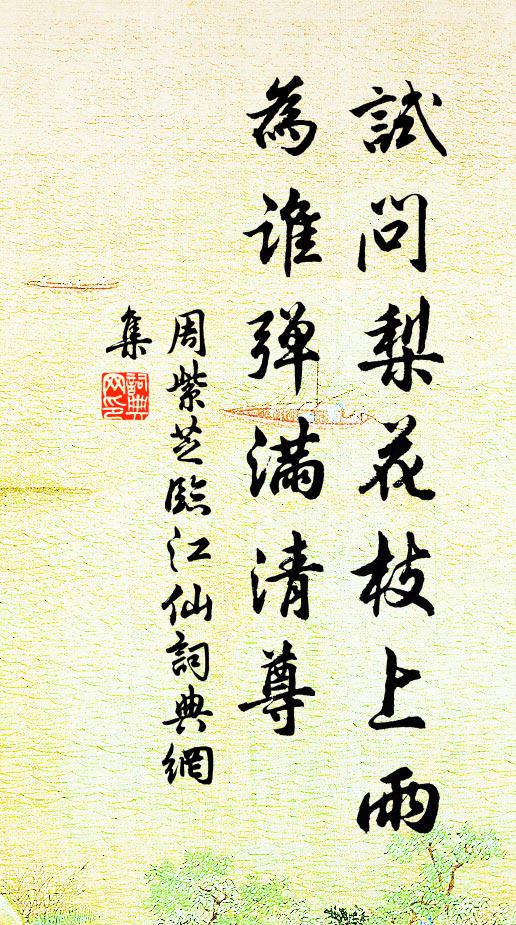 試問梨花枝上雨
為誰弹滿清尊
周紫芝臨江仙詞典網
集
詞典
网印